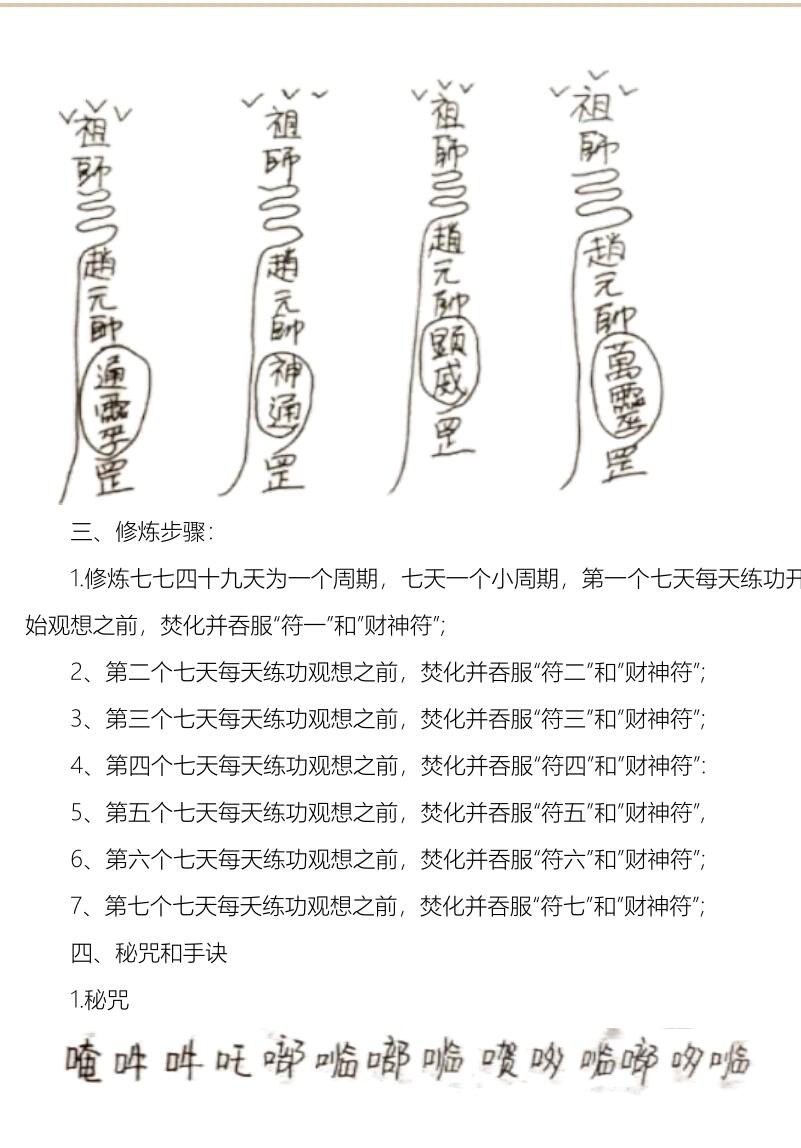 祖師 趙元帥 通靈 罡
祖師 趙元帥 神通 罡
祖師 趙元帥 顕威 罡
祖師 趙元帥 萬靈 罡
三、修炼步骤：
1.修炼七七四十九天为一个周期，七天一个小周期，第一个七天每天练功开
始观想之前，焚化并吞服“符一”和”财神符”;
2、第二个七天每天练功观想之前，焚化并吞服“符二”和”财神符”;
3、第三个七天每天练功观想之前，焚化并吞服“符三”和”财神符”;
4、第四个七天每天练功观想之前，焚化并吞服“符四”和”财神符”:
5、第五个七天每天练功观想之前，焚化并吞服“符五”和”财神符”,
6、第六个七天每天练功观想之前，焚化并吞服“符六”和”财神符”;
7、第七个七天每天练功观想之前，焚化并吞服“符七”和”财神符”;
四、秘咒和手诀
1.秘咒
唵吽吽吒啷 啷